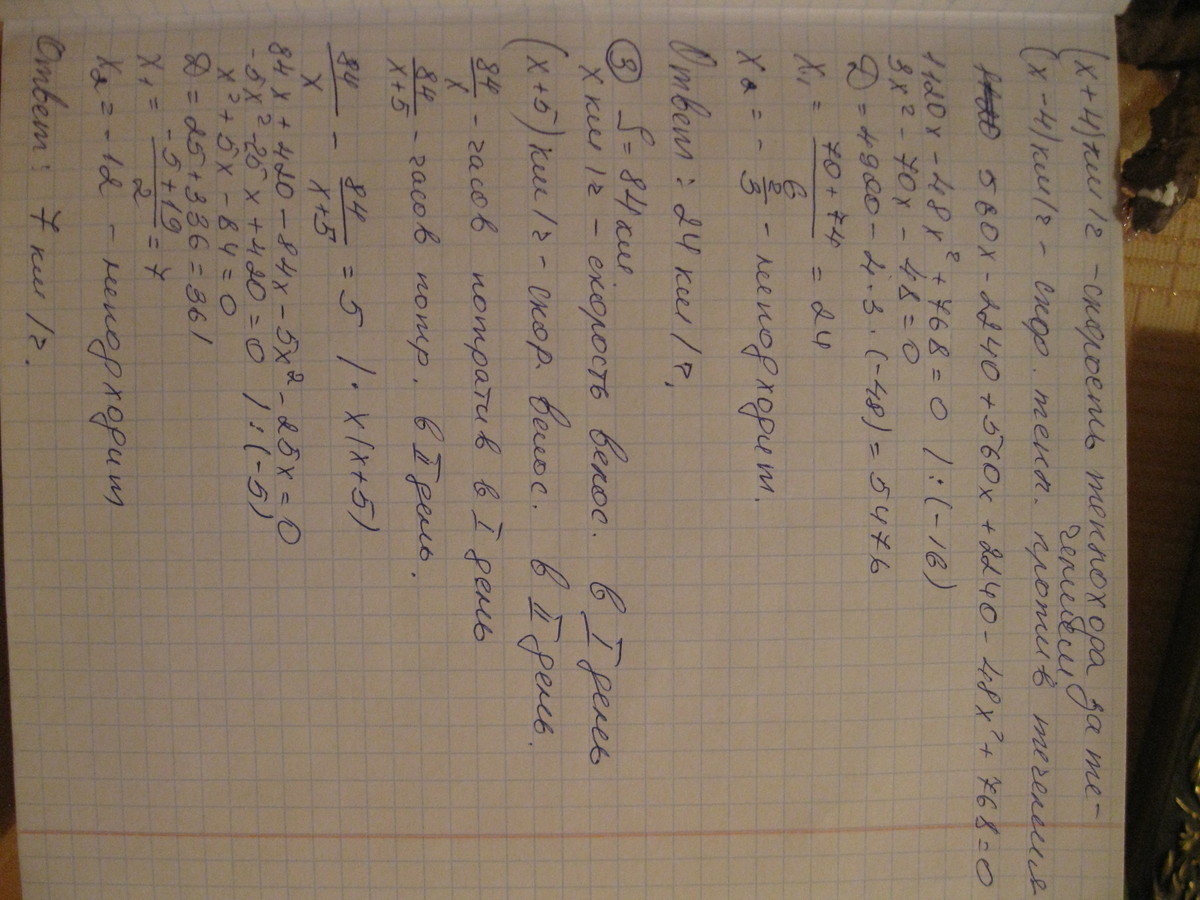 (x+4) км/г - скорость теплохора за те-
чением
(x-4) км/г - скор. тепл. против течения
560x - 2240 + 560x + 2240 - 48x² + 768 = 0
1120x - 48x² + 768 = 0 / : (-16)
3x² - 70x - 48 = 0
D = 4900 - 4·3·(-48) = 5476
x₁ = 70+74/6 = 24
x₂ = - 2/3 - не подходит.
Ответ: 24 км/г.
③ S = 84 км.
x км/г - скорость велос. в I день
(x+5) км/г - скор. велос. в II день.
84/x - часов потратив в I день
84/x+5 - часов потр. в II день.
84/x - 84/x+5 = 5 / · x(x+5)
84x + 420 - 84x - 5x² - 25x = 0
-5x² - 25x + 420 = 0 / : (-5)
x² + 5x - 84 = 0
D = 25 + 336 = 361
x₁ = -5+19/2 = 7
x₂ = -12 - не подходит
Ответ: 7 км/г.